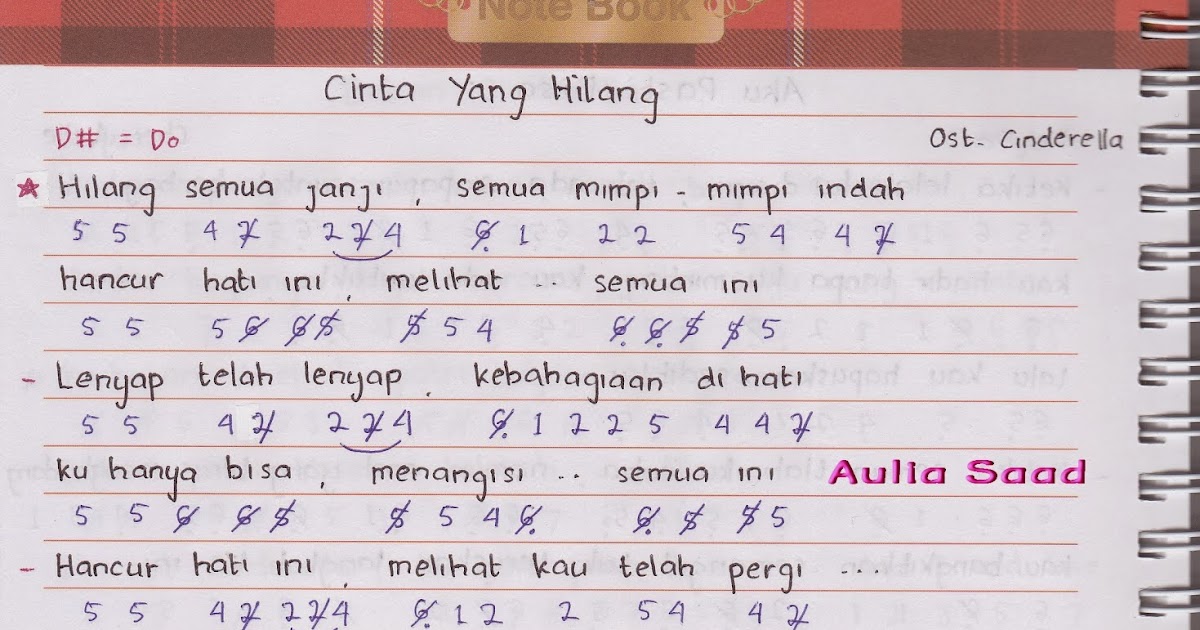 Note Book
Cinta Yang Hilang
D# = Do
Ost. Cinderella
★ Hilang semua janji , semua mimpi - mimpi indah
5 5 4 2̸ 2 2̸ 4 6̸̣ 1 2 2 5 4 4 2̸
hancur hati ini , melihat .. semua ini
5 5 5 6̸ 6̸ 5̸ 5̸ 5 4 6̸̣ 6̸̣ 5̸ 5̸ 5
- Lenyap telah lenyap , kebahagiaan di hati
5 5 4 2̸ 2 2̸ 4 6̸̣ 1 2 2 5 4 4 2̸
ku hanya bisa , menangisi .. semua ini
Aulia Saad
5 5 6̸ 6̸ 5̸ 5̸ 5 4 6̸̣ 6̸̣ 5̸ 5̸ 5
- Hancur hati ini melihat kau telah pergi ...
5 5 4 2̸ 2 2̸ 4 6̸̣ 1 2 2 5 4 4 2̸